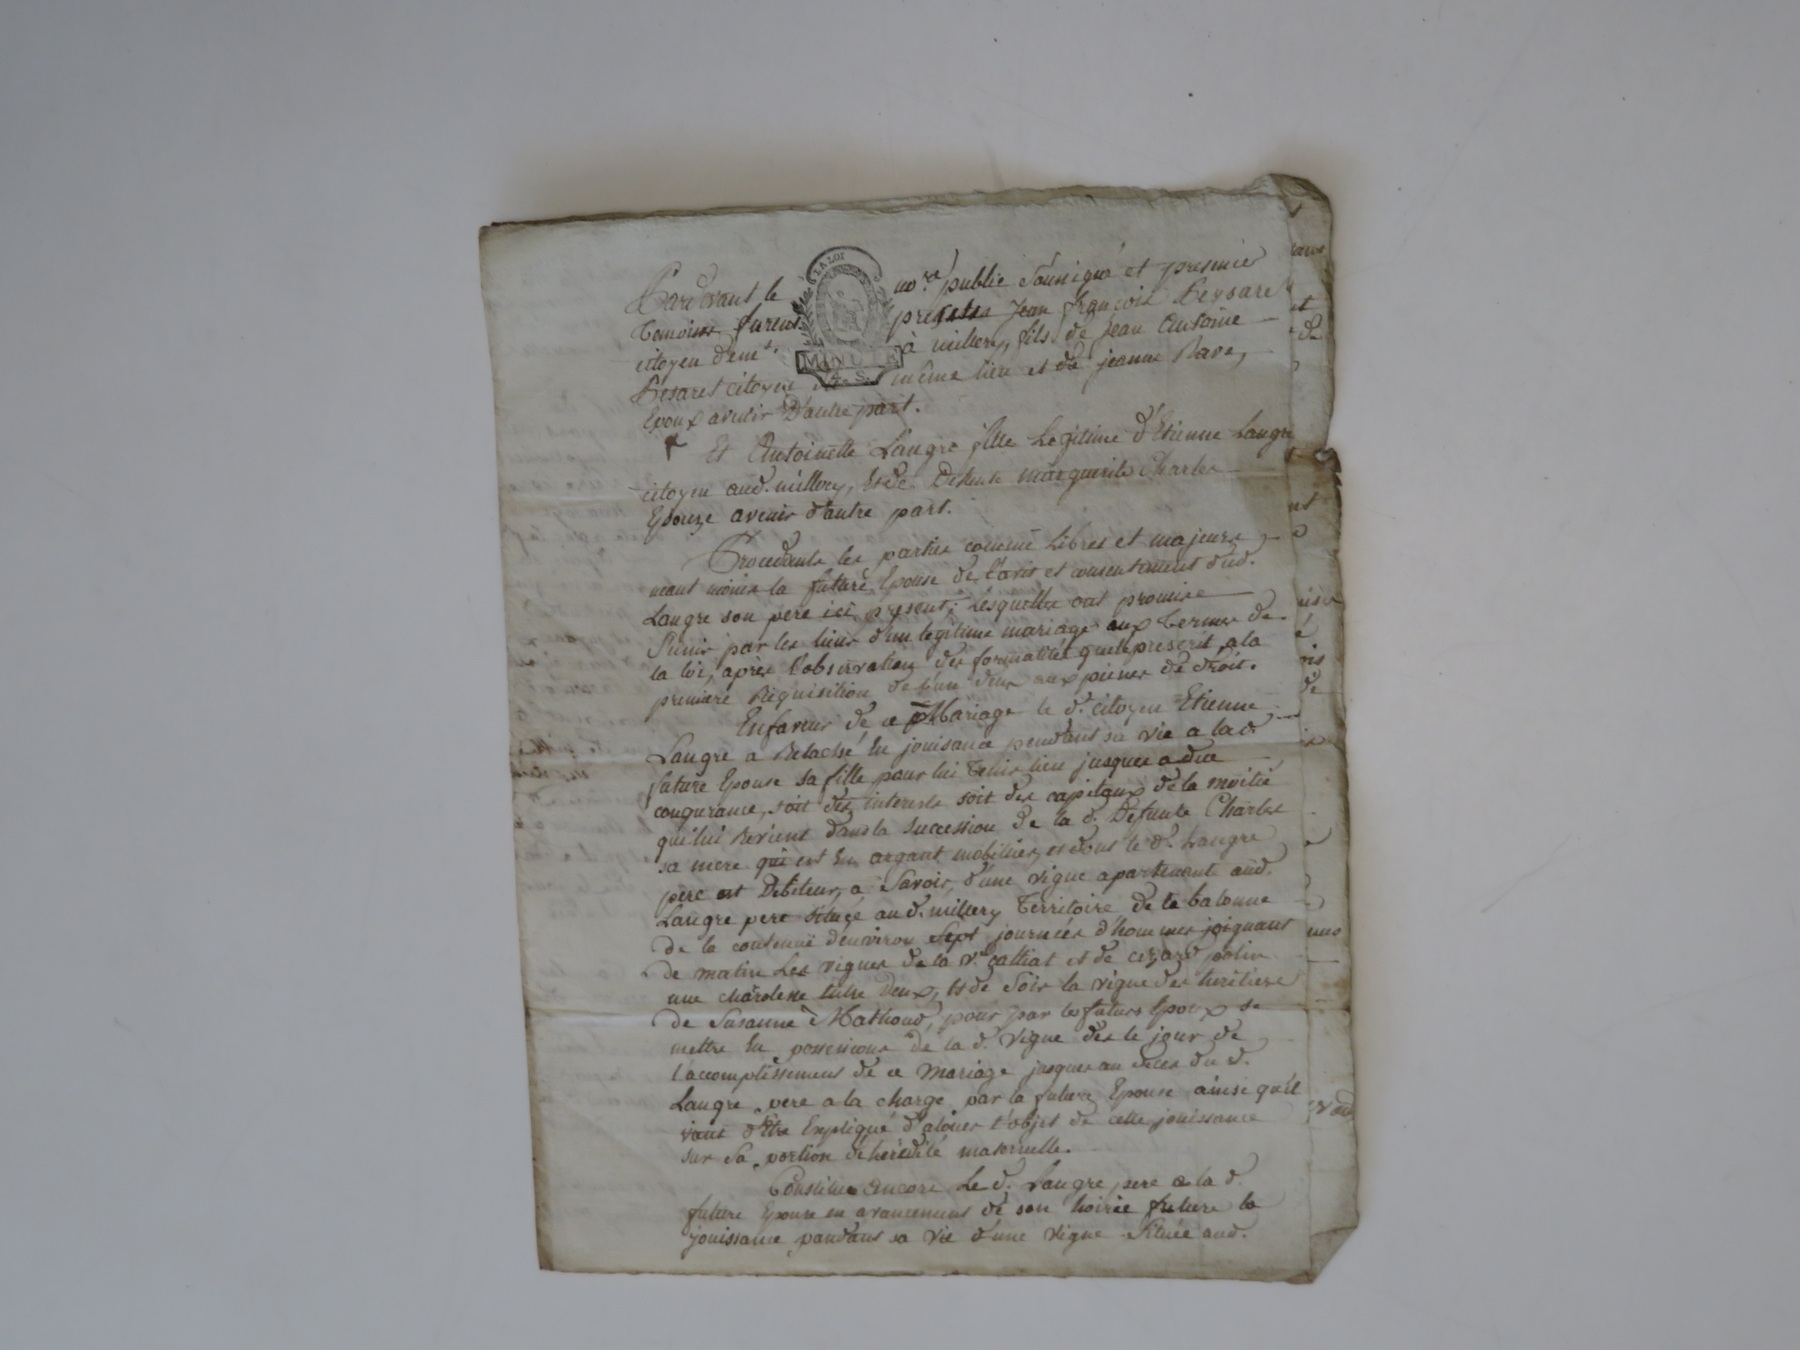 LA LOI
MINUTE
4. S.
Pardevant le no.re public Soussigné et presence
Temoins furent presents Jean françois Besaret
citoyen dem.t a millery, fils de Jean Antoine
Besaret citoyen du même lieu et de jeanne Rave,
Epoux avenir D'autre part.
Et Antoinette Laugre fille Legitime d'Etienne Laugre
citoyen aud. millery, et de Defunte marguerite Charles
Epouze avenir d'autre part.
Procedants les parties comme Libres et majeures
neant moins la future Epouse de l'avis et consentement dud.
Laugre son pere ici present; Lesquelles ont promise
S'unir par les liens d'un legitime mariage aux termes de
la loi, apres l'observation des formalités quelle prescrit, a la
premiere Requisition de l'un d'eux aux peines de droit.
En faveur de ce Mariage le d. citoyen Etienne
Laugre a Relaché En jouisance pendant sa vie a lad.
future Epouse sa fille pour lui Tenir lieu jusques a due
concurance, soit des interests soit des capitaux de la moitié
qui lui Revient dans la succession de la d. Defunte Charles
sa mere qui est En argant mobillier, et dont le d. Laugre
pere est Debiteur, a Savoir, d'une vigne apartenante aud.
Laugre pere Située au d. millery Territoire de la balonne
de la contenue denviron Sept journées d'hommes joignant
de matin Les vignes de la v.e galliat et de cezard
une charolene Entre Deux, et de Soir la vigne des heritiers
de Susanne Mathoud, pour par les futurs Epoux se
mettre En possessions de la d. vigne des le jour de
l'accomplissement de ce Mariage jusques au deces du d.
Laugre pere a la charge par la future Epouse ainsi qu'il
vient d'Etre Expliqué d'alouer l'objet de cette jouissance
sur Sa portion d'hérédité maternelle.
Constitue Ancore Le d. Laugre pere a la d.
future Epouse en avancement de son hoirie future la
jouissance pandant sa vie d'une vigne Située aud.